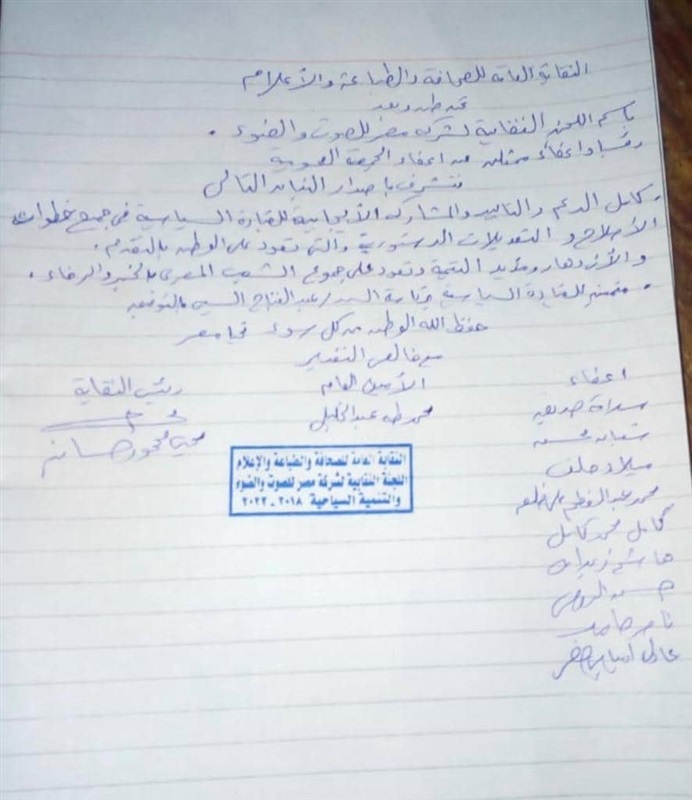 النقابة العامة للصحافة والطباعة والأعلام
تحية طيبة وبعد
باسم اللجنة النقابية لشركة مصر للصوت والضوء .
رئيسا واعضاء ممثلين عن اعضاء الجمعية العمومية
نتشرف باصدار البيان التالى
. كامل الدعم والتاييد والمشاركة الأيجابية للقيادة السياسية فى جميع خطوات
الأصلاح و التعديلات الدستورية والتى تعود على الوطن بالتقدم .
والأزدهار ومزيد التنمية وتعود على جموع الشعب المصرى بالخير والرخاء .
. متمنين للقيادة السياسية بقيادة السيد / عبد الفتاح السيسى بالتوفيق
حفظ الله الوطن من كل سوء تحيا مصر
مع خالص التقدير
اعضاء
الأمين العام
رئيس النقابة
محمد طه عبد الجليل
شعبان
ميلاد خلف
محمد عبد العظيم
كامل محمد كامل
هانى
ناصر حامد
عادل
النقابة العامة للصحافة والطباعة والإعلام
اللجنة النقابية لشركة مصر للصوت والضوء
والتنمية السياحية ٢٠١٨ - ٢٠٢٢